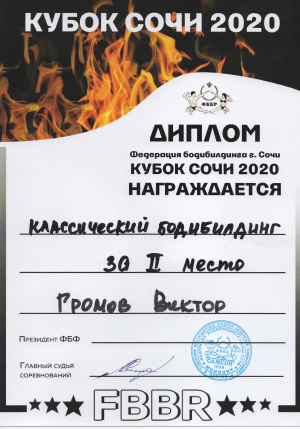 КУБОК СОЧИ 2020
ФББР
ДИПЛОМ
Федерация бодибилдинга г. Сочи
КУБОК СОЧИ 2020
НАГРАЖДАЕТСЯ
классический бодибилдинг
за II место
Громов Виктор
Президент ФБФ
Главный судья
соревнований
САМСОН
FBBR